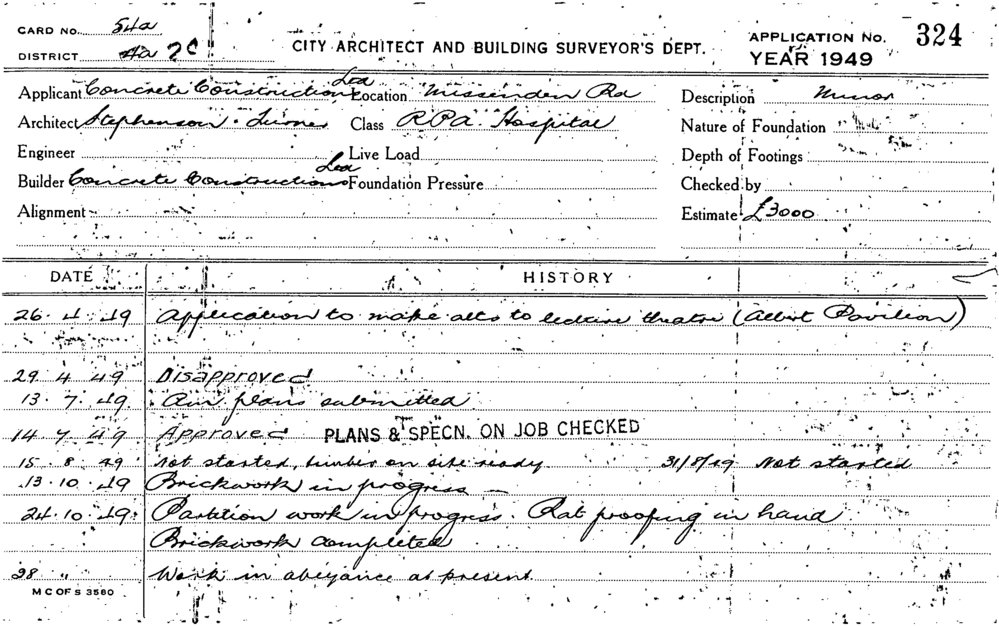 CARD No. 54a
DISTRICT 4a 2C
CITY ARCHITECT AND BUILDING SURVEYOR'S DEPT.
APPLICATION No. 324
YEAR 1949
Applicant Concrete Constructions Ltd Location Missenden Rd Description Minor
Architect Stephenson & Turner Class R.P.A. Hospital Nature of Foundation
Engineer Live Load Depth of Footings
Builder Concrete Constructions Ltd Foundation Pressure Checked by
Alignment Estimate £3000
DATE HISTORY
26.4.49 Application to make alts to lecture theatre (Albert Pavilion)
29 4 49 Disapproved
13.7.49 Am plans submitted
14 7 49 Approved PLANS & SPECN. ON JOB CHECKED
15.8.49 Not started, timber on site ready 31/8/49 Not started
13.10.49 Brickwork in progress
24.10.49 Partition work in progress. Rat proofing in hand
Brickwork completed
28 " Work in abeyance at present
M C OF S 3580